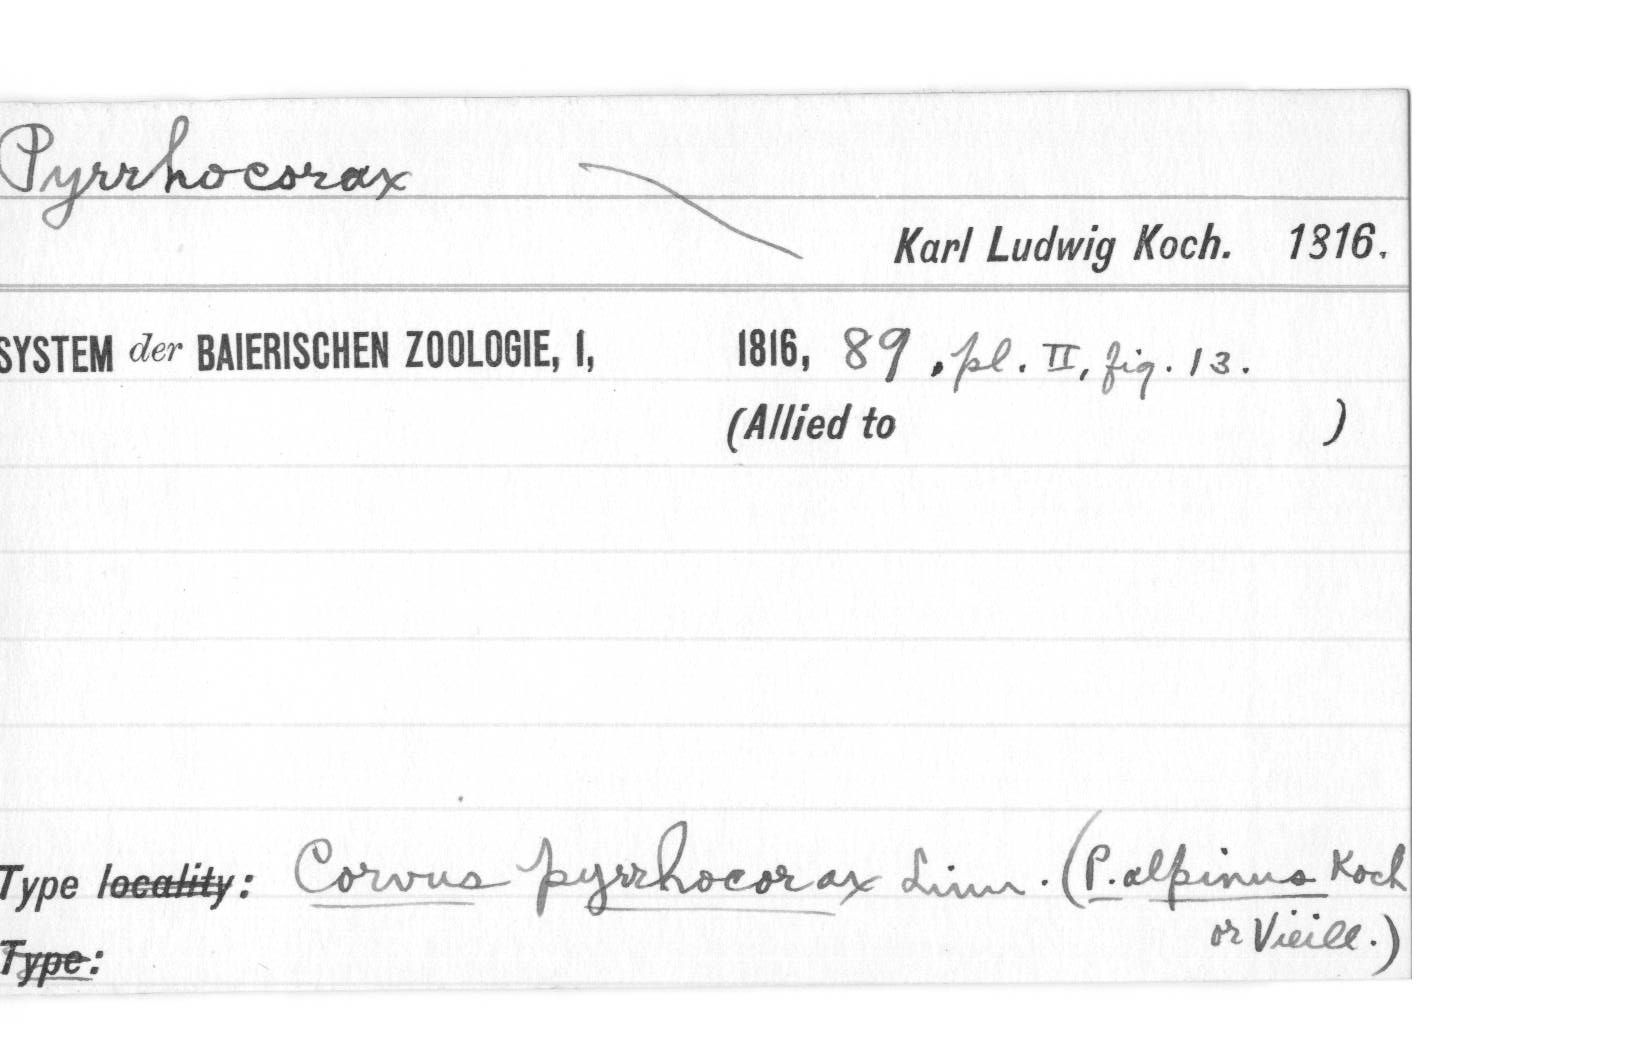 Pyrrhocorax
Karl Ludwig Koch. 1816.
SYSTEM der BAIERISCHEN ZOOLOGIE, I, 1816, 89, pl. II, fig. 13.
(Allied to )
Type locality: Corvus pyrrhocorax Linn. (P. alpinus Koch
or Vieill.)
Type: